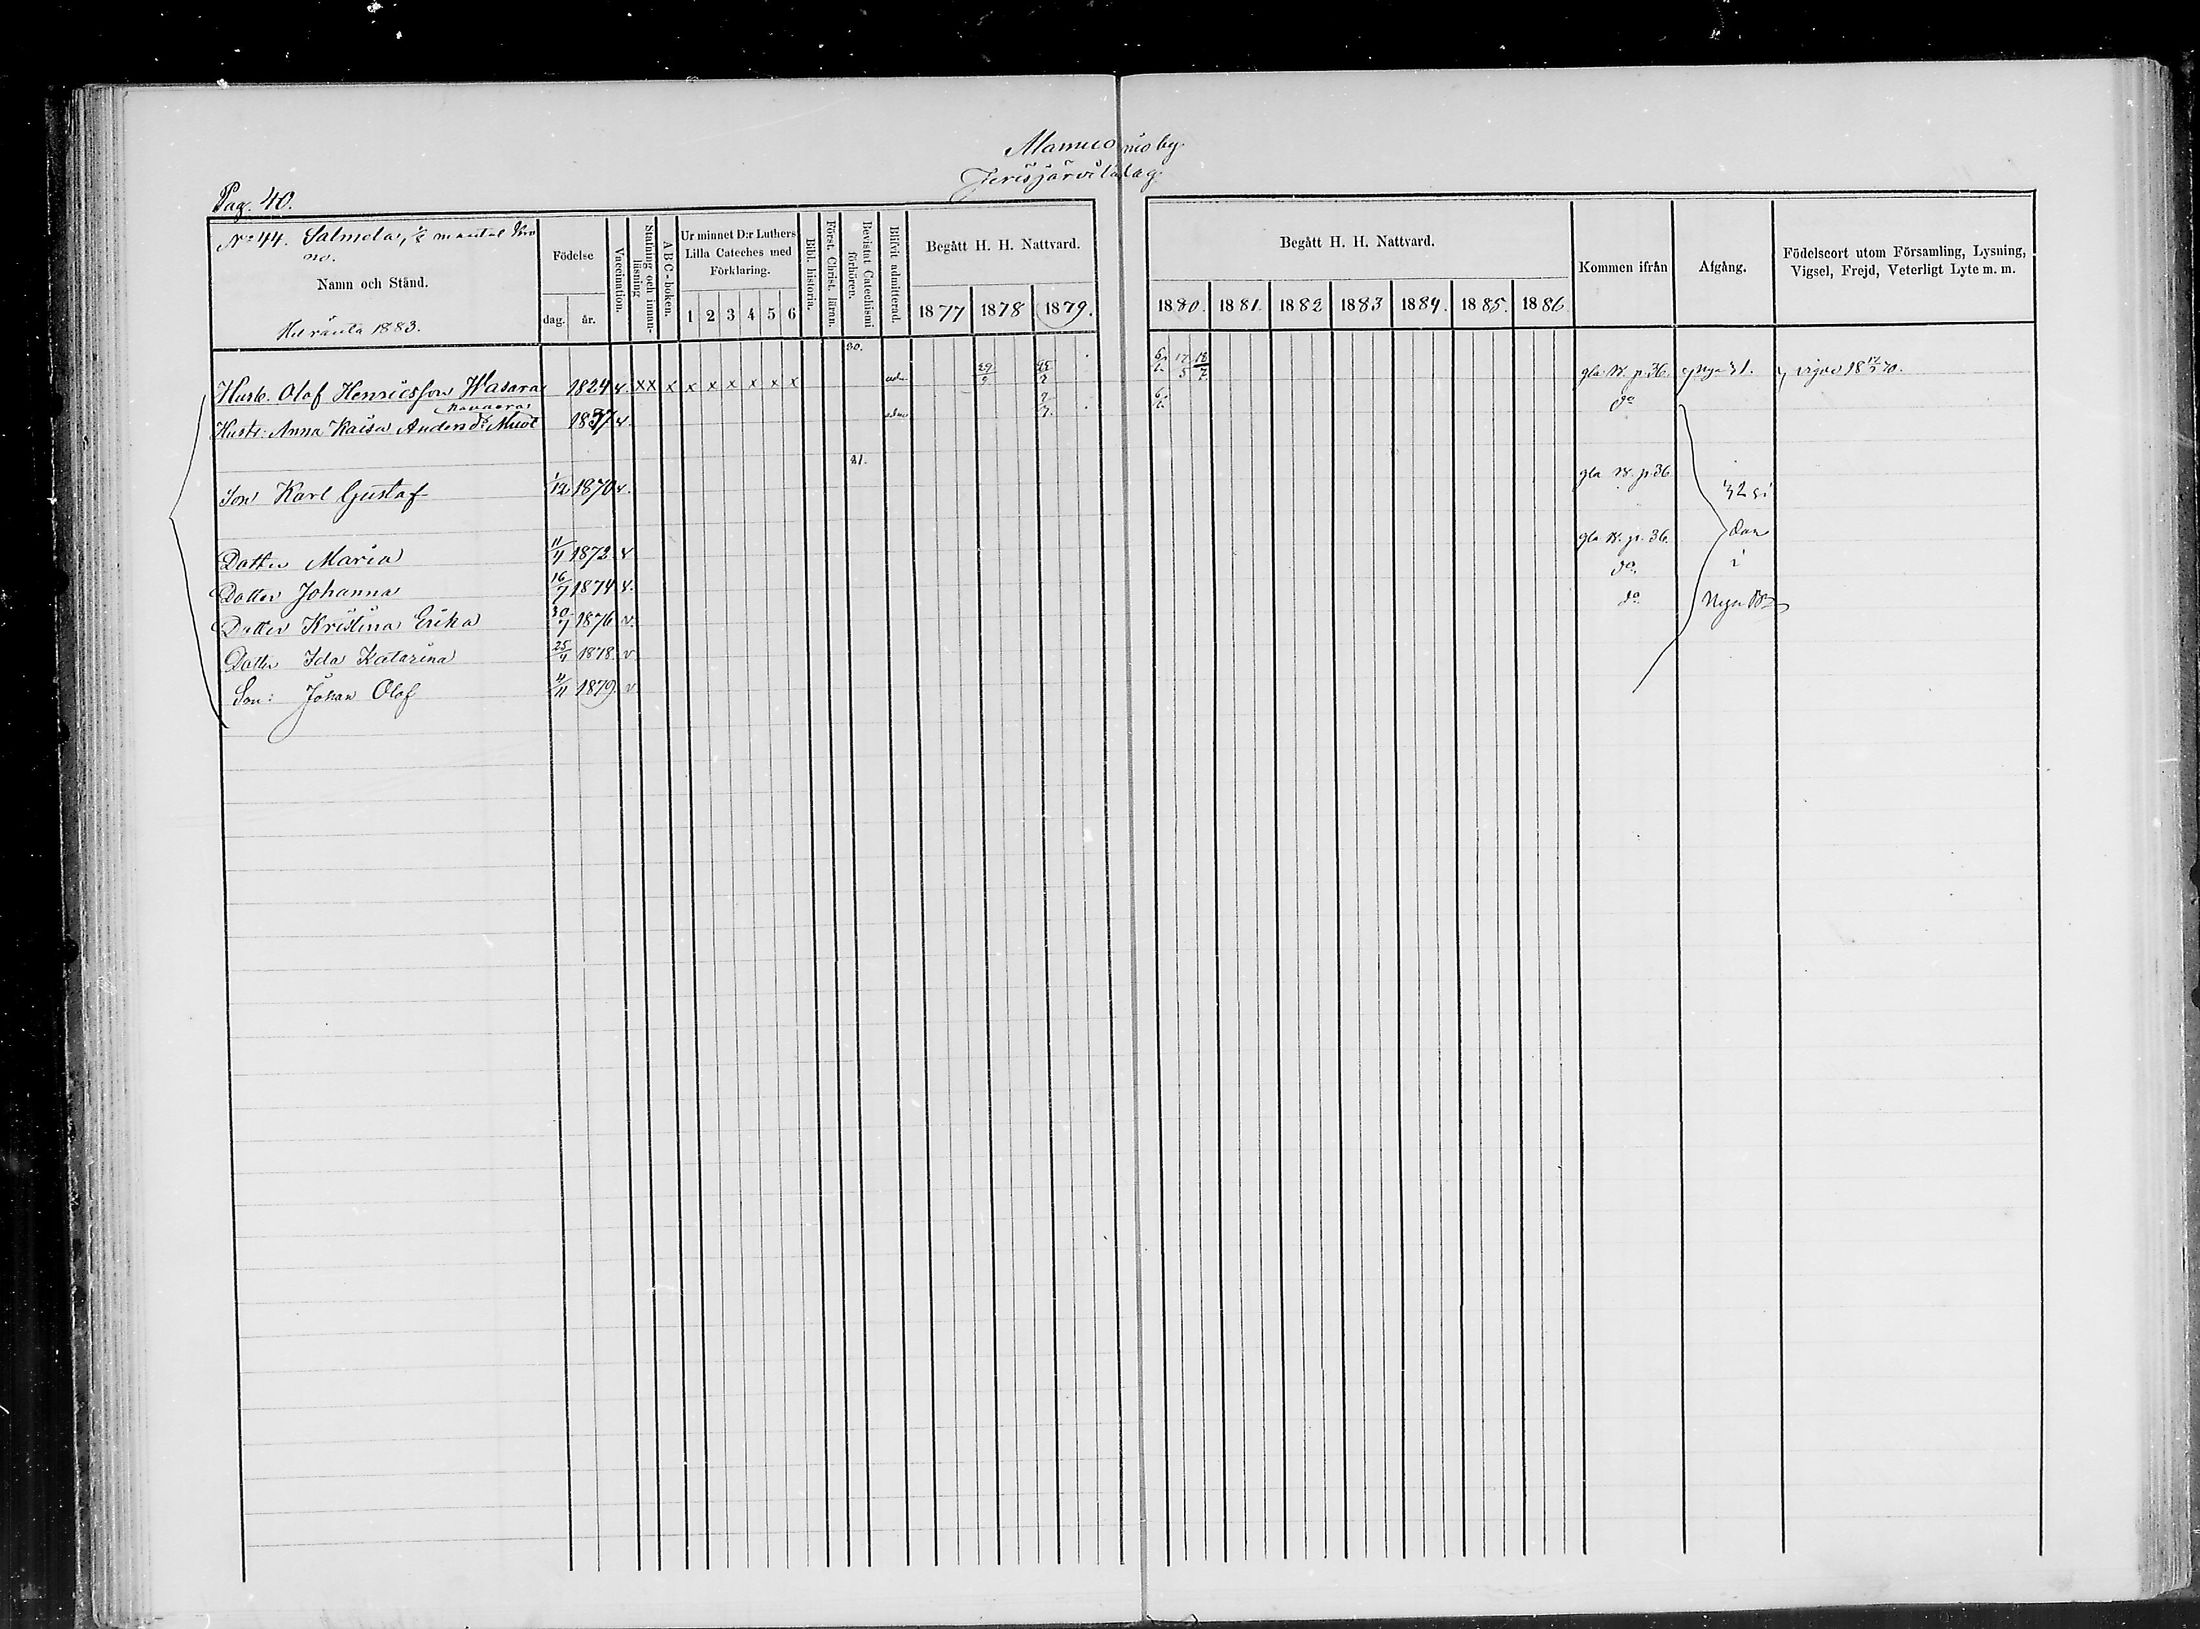 Muonio by.
Jerisjärvi lag.
Pag. 40.
No 44. Salmela, 1/6 mantal Kro
no.
Namn och Stånd.
Hel ränta 1883.
Födelse
dag. år.
Vaccination.
Stafning och innanläsning
ABC-boken.
Ur minnet D:r Luthers Lilla Cateches med Förklaring.
1 2 3 4 5 6
Bibl. historia.
Först. Christ. läran.
Bevistat Catechismi förhören.
Blifvit admitterad.
Begått H. H. Nattvard.
1877 1878 1879.
Begått H. H. Nattvard.
1880. 1881. 1882 1883 1884. 1885. 1886
Kommen ifrån
Afgång.
Födelseort utom Församling, Lysning, Vigsel, Frejd, Veterligt Lyte m. m.
80.
Husb. Olof Henricsson Wasara 1824 v. x x x x x x x x x adm 29/9 6/2 17/5 18/7 gla B. p. 36. Nya 31. vigde 18 17/3 70.
Hustr. Anna Kaisa Anders dr 1837 v. adm 6/2 do
81.
Son Karl Gustaf 1/12 1870 v. gla B. p. 36
Dotter Maria 11/4 1872. v gla B. p. 36.
Dotter Johanna 16/7 1874 v. do
Dotter Kristina Erika 30/7 1876 v. do
Dotter Ida Katarina 25/4 1878. v
Son: Johan Olof 4/11 1879. v
32 si
dan
i
Nya B